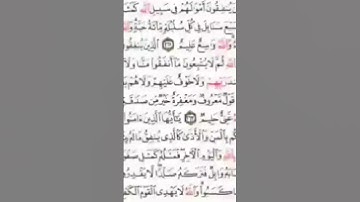 يُنفِقُونَ أَمْوَٰلَهُمْ فِى سَبِيلِ ٱللَّهِ
سَنَابِلَ فِى كُلِّ سُنۢبُلَةٍ مِّا۟ئَةُ حَبَّةٍ
وَٱللَّهُ وَٰسِعٌ عَلِيمٌ ٱلَّذِينَ
ٱللَّهِ ثُمَّ لَا يُتْبِعُونَ مَآ أَنفَقُوا۟ مَنًّا وَلَآ
رَبِّهِمْ وَلَا خَوْفٌ عَلَيْهِمْ وَلَا هُمْ
قَوْلٌ مَّعْرُوفٌ وَمَغْفِرَةٌ خَيْرٌ مِّن صَدَقَةٍ
غَنِىٌّ حَلِيمٌ يَٰٓأَيُّهَا ٱلَّذِينَ ءَامَنُوا۟
بِٱلْمَنِّ وَٱلْأَذَىٰ كَٱلَّذِى يُنفِقُ
بِٱللَّهِ وَٱلْيَوْمِ ٱلْءَاخِرِ فَمَثَلُهُۥ كَمَثَلِ
وَابِلٌ فَتَرَكَهُۥ صَلْدًا لَّا
كَسَبُوا۟ وَٱللَّهُ لَا يَهْدِى ٱلْقَوْمَ